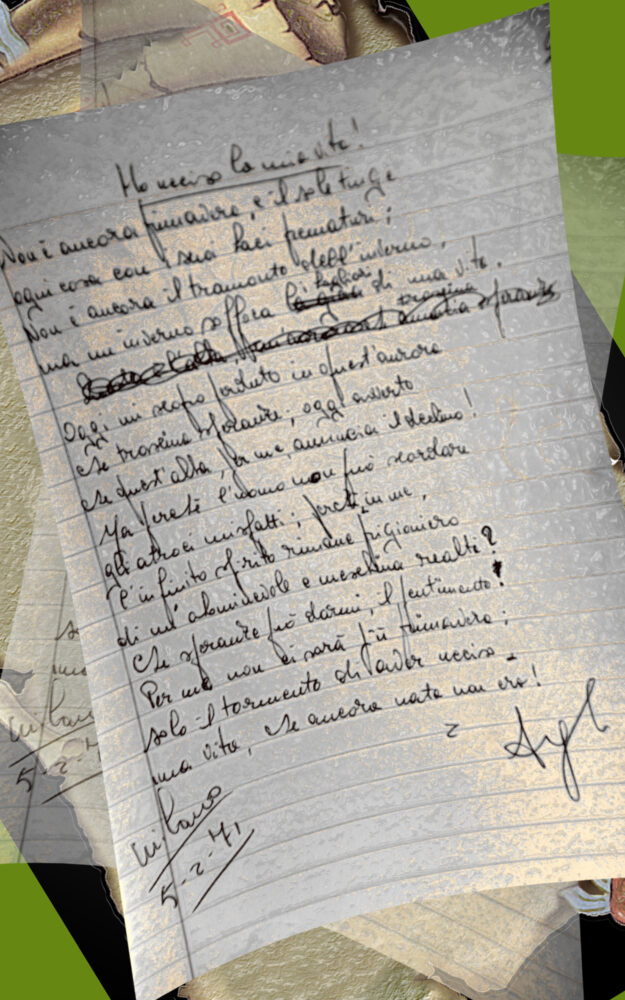 Ho ucciso la mia vita!
Non è ancora primavera, e il sole turge
ogni cosa con i suoi baci prematuri;
Non è ancora il tramonto dell'inverno,
ma un inverno soffoca i migliori di una vita.
Oggi mi scopro perduto in quest'aurora
che trascina speranze; oggi avverto
che quest'alba, per me, annuncia il declino!
Ma perché l'uomo non può scordare
gli atroci misfatti; perché, in me,
l'infinito spirito rimane prigioniero
di un'abominevole e meschina realtà?
Che speranze può darmi, il pentimento!
Per me non ci sarà più primavera;
solo il tormento di aver ucciso
una vita, che ancora nata non era!
Milano
5-2-71